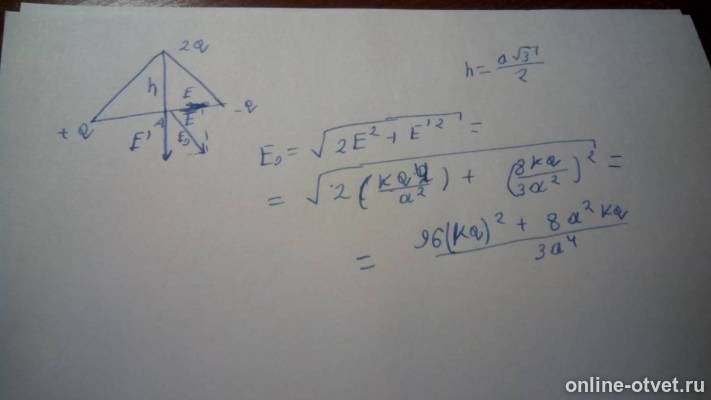 2Q
h = a√3 / 2
h
E
-Q
+Q
A
E'
E'
E₀
E₀ = √(2E² + E'²) =
= √(2(kQ4 / a²) + (8kQ / 3a²)²) =
= 96(kQ)² + 8a²kQ / 3a⁴
online-otvet.ru